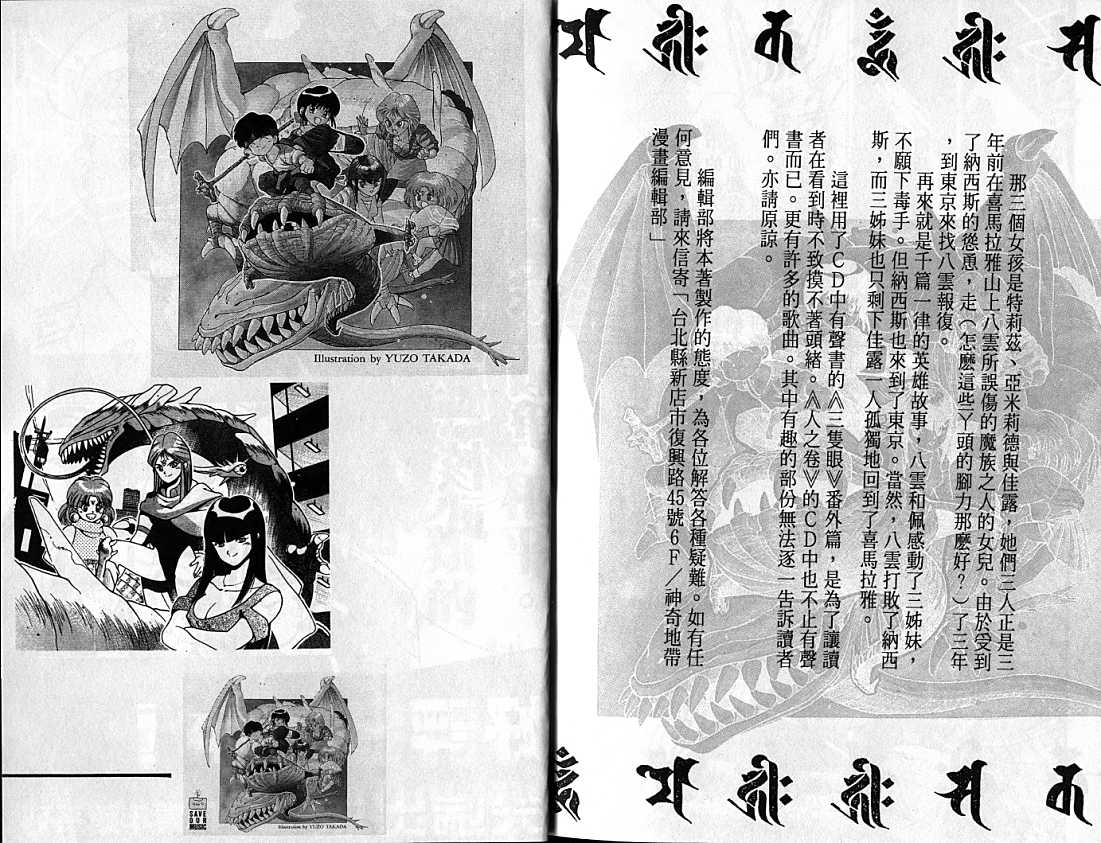 那三個女孩是特莉茲、亞米莉德與佳露，她們三人正是三
年前在喜馬拉雅山上八雲所誤傷的魔族之人的女兒。由於受到
了納西斯的慫恿，走（怎麼這些丫頭的腳力那麼好？）了三年
，到東京來找八雲報復。
再來就是千篇一律的英雄故事，八雲和佩感動了三姊妹，
不願下毒手。但納西斯也來到了東京。當然，八雲打敗了納西
斯，而三姊妹也只剩下佳露一人孤獨地回到了喜馬拉雅。
這裡用了CD中有聲書的《三隻眼》番外篇，是為了讓讀
者在看到時不致摸不著頭緒。《人之卷》的CD中也不止有聲
書而已。更有許多的歌曲。其中有趣的部份無法逐一告訴讀者
們。亦請原諒。
編輯部將本著製作的態度，為各位解答各種疑難。如有任
何意見，請來信寄「台北縣新店市復興路45號6F／神奇地帶
漫畫編輯部」
Illustration by YUZO TAKADA
SAVE
OUR
MUSIC
Illustration by YUZO TAKADA